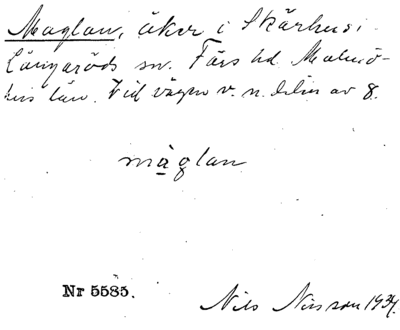 Maglan, åker i Skärhus i
Långaröds sn. Färs hd. Malmö-
hus län. Vid vägen v. n. delen av 8.
màglan
Nr 5585.
Nils Nilsson 1934.